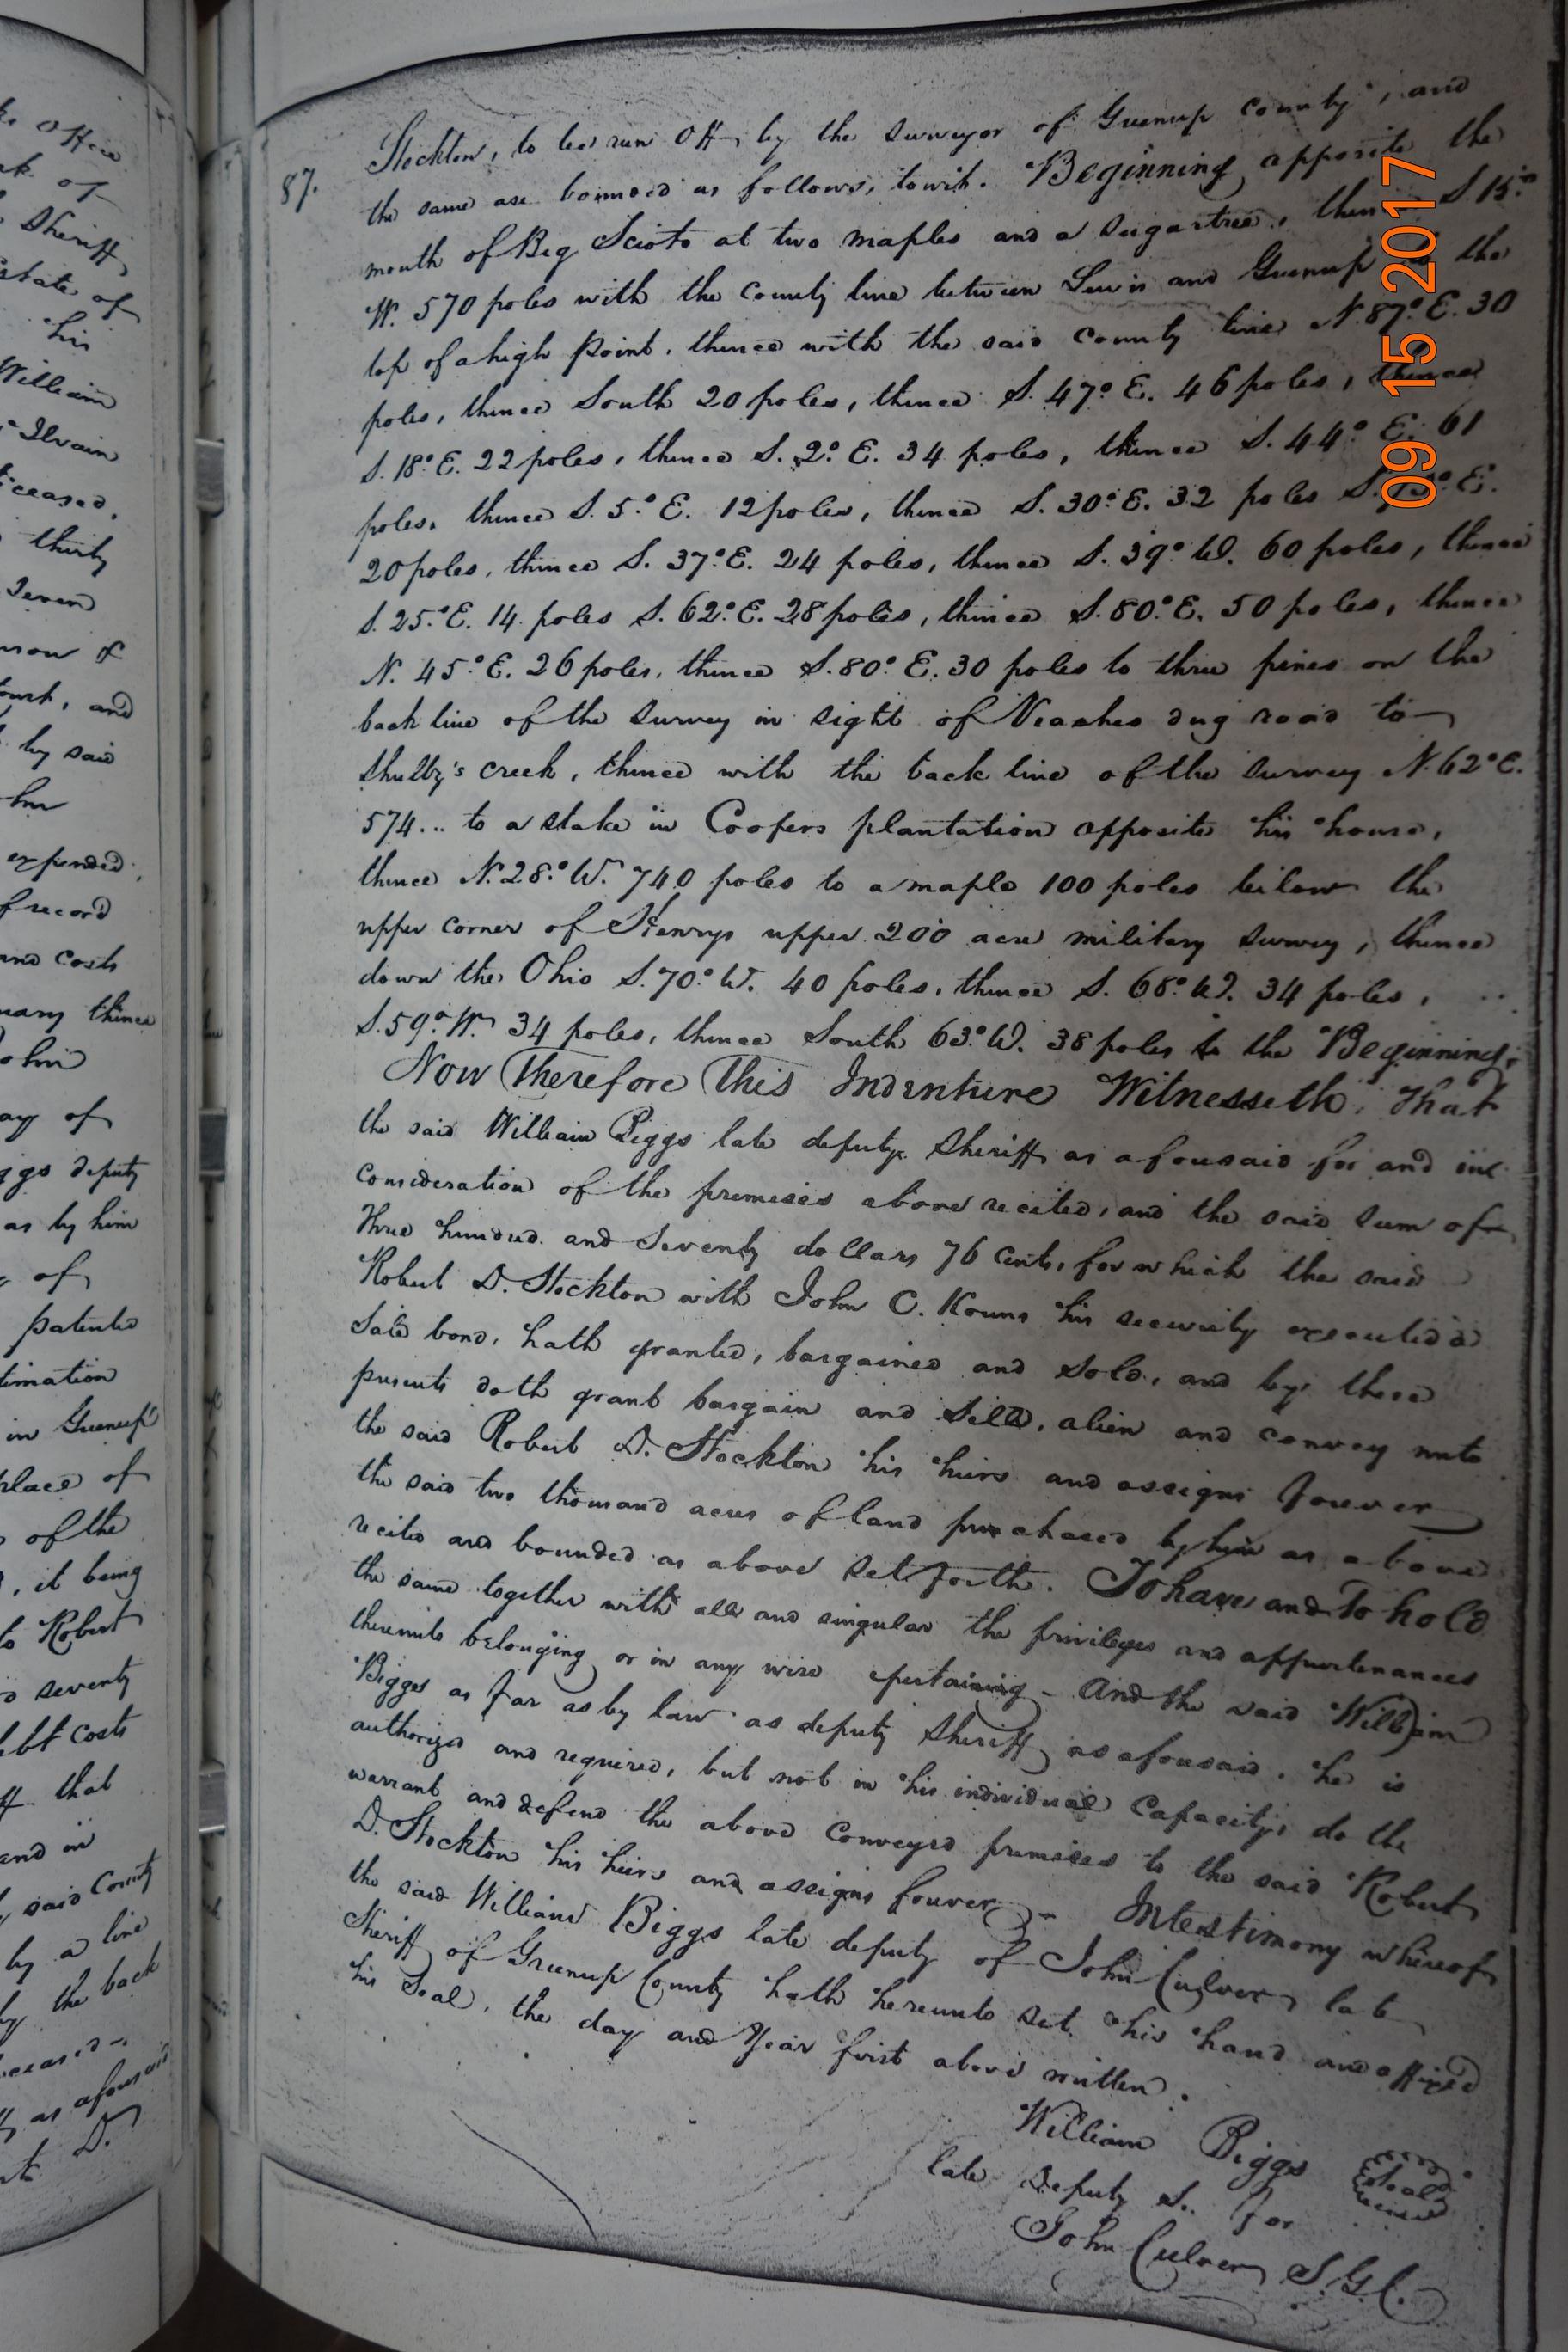 ks office
ok of
Sheriff
state of
his
William
Ilvain
ceased,
thirty
seven
row of
ourt, and
by said
hn
expended,
f record
and costs
mary thence
John
ay of
ggs deputy
as by him
of
patented
timation
in Greenup
place of
of the
, it being
to Robert
d seventy
ebt costs
ff that
and in
said County
by a line
by the back
eceased
as aforesaid
D.
87.
Stockton, to be run off by the surveyor of Greenup County, and
the same are bounded as follows, towit. Beginning opposite the
mouth of Big Scioto at two maples and a sugartree, thence S. 15°
W. 570 poles with the county line between Lewis and Greenup to the
top of a high point, thence with the said county line N. 87° E. 30
poles, thence South 20 poles, thence S. 47° E. 46 poles, thence
S. 18° E. 22 poles, thence S. 2° E. 34 poles, thence S. 44° E. 61
poles, thence S. 5° E. 12 poles, thence S. 30° E. 32 poles S. E.
20 poles, thence S. 37° E. 24 poles, thence S. 39° W. 60 poles, thence
S. 25° E. 14 poles S. 62° E. 28 poles, thence S. 80° E. 50 poles, thence
N. 45° E. 26 poles, thence S. 80° E. 30 poles to three pines on the
back line of the survey in sight of Veaches dug road to
Shulby's creek, thence with the back line of the survey N. 62° E.
574... to a stake in Coopers plantation opposite his house,
thence N. 28° W. 740 poles to a maple 100 poles below the
upper corner of Henrys upper 200 acre military survey, thence
down the Ohio S. 70° W. 40 poles, thence S. 68° W. 34 poles,
S. 59° W. 34 poles, thence South 63° W. 38 poles to the Beginning;
Now Therefore This Indenture Witnesseth, That
the said William Biggs late deputy Sheriff as aforesaid for and in
consideration of the premises above recited, and the said sum of
Three hundred and seventy dollars 76 cents, for which the said
Robert D. Stockton with John C. Kouns his security executed a
Sale bond, hath granted, bargained and sold, and by these
presents doth grant bargain and sell, alien and convey unto
the said Robert D. Stockton his heirs and assigns forever
the said two thousand acres of land purchased by him as above
recited and bounded as above set forth. To have and To hold
the same together with all and singular the privileges and appurtenances
thereunto belonging or in any wise apertaining - And the said William
Biggs as far as by law as deputy Sheriff as aforesaid, he is
authorized and required, but not in his individual Capacity, do the
warrant and defend the above conveyed premises to the said Robert
D. Stockton his heirs and assigns forever - Intestimony whereof
the said William Biggs late deputy of John Culver late
Sheriff of Greenup County hath hereunto set his hand and affixed
his Seal, the day and Year first above written.
William Biggs Seal
late Deputy S. for
John Culver S.G.C.
09 15 2017